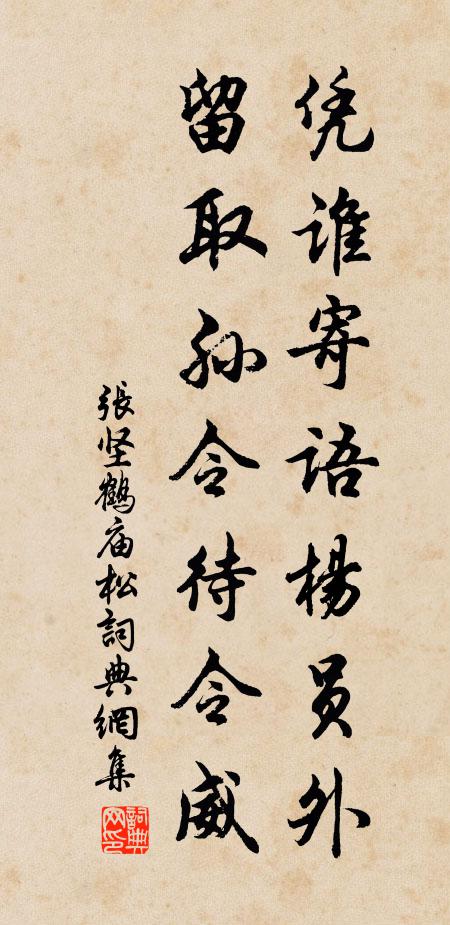 凭誰寄語楊员外
留取孙令待令威
張坚鶴庙松詞典網集
詞典网印